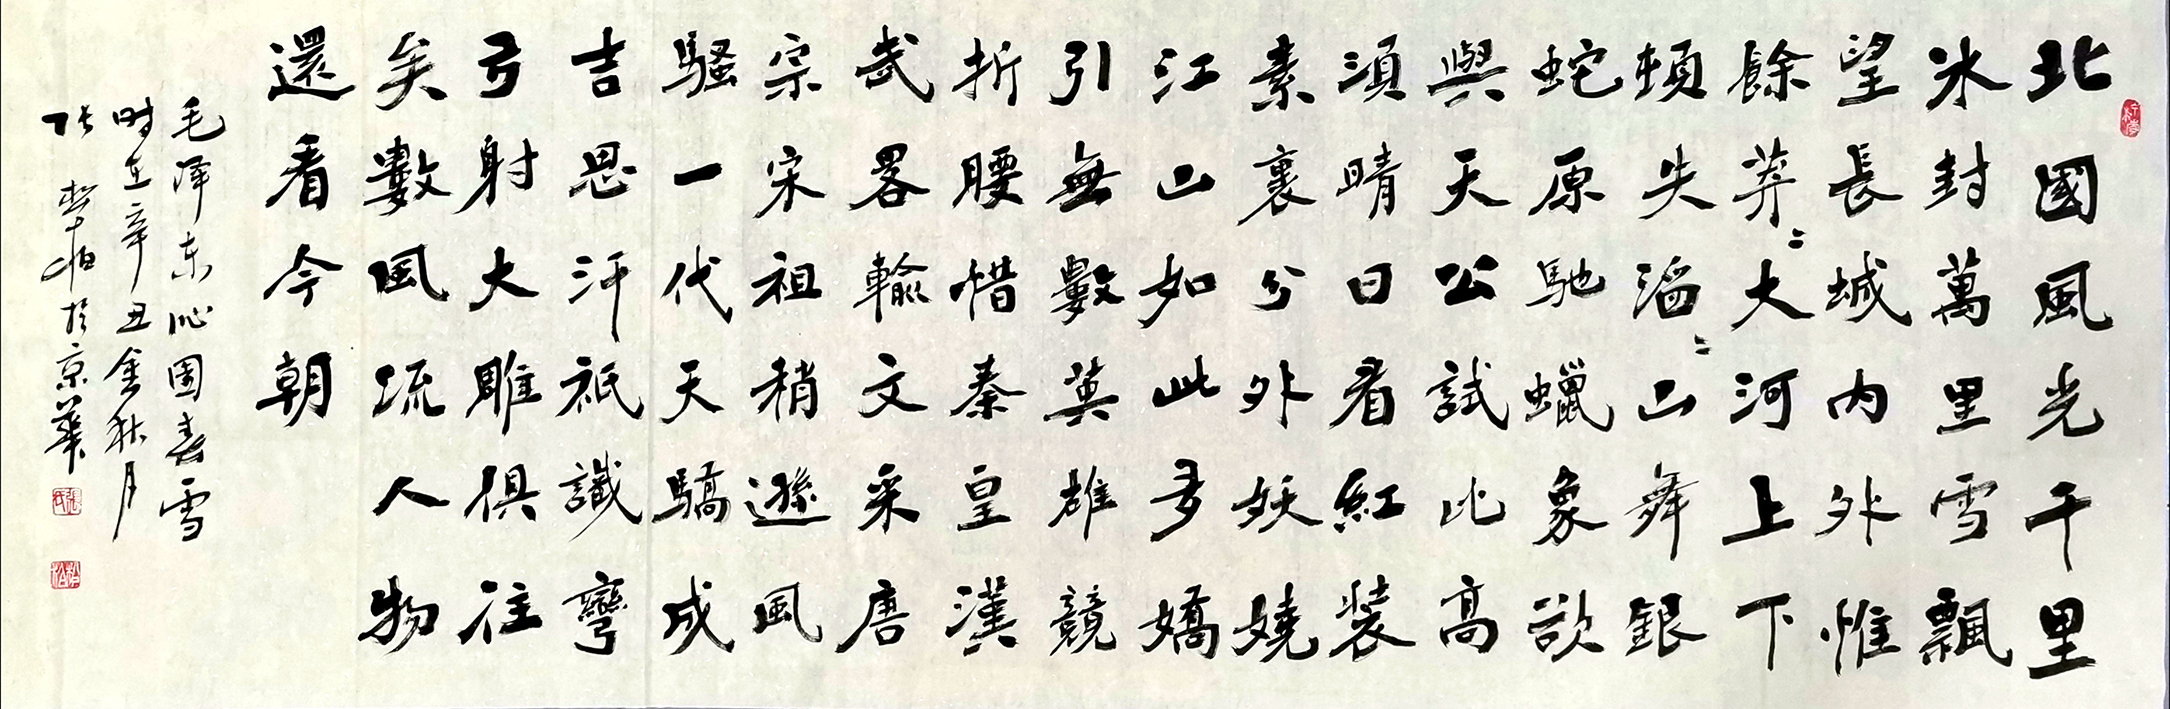 北國風光千里
冰封萬里雪飄
望長城内外惟
餘莽〻大河上下
頓失滔〻山舞銀
蛇原馳蠟象欲
與天公試比高
須晴日看紅裝
素裹分外妖嬈
江山如此多嬌
引無數英雄競
折腰惜秦皇漢
武畧輸文采唐
宗宋祖稍遜風
騷一代天驕成
吉思汗祇識彎
弓射大雕俱往
矣數風流人物
還看今朝
毛泽东沁園春雪
时在辛丑金秋月
张松柏於京華